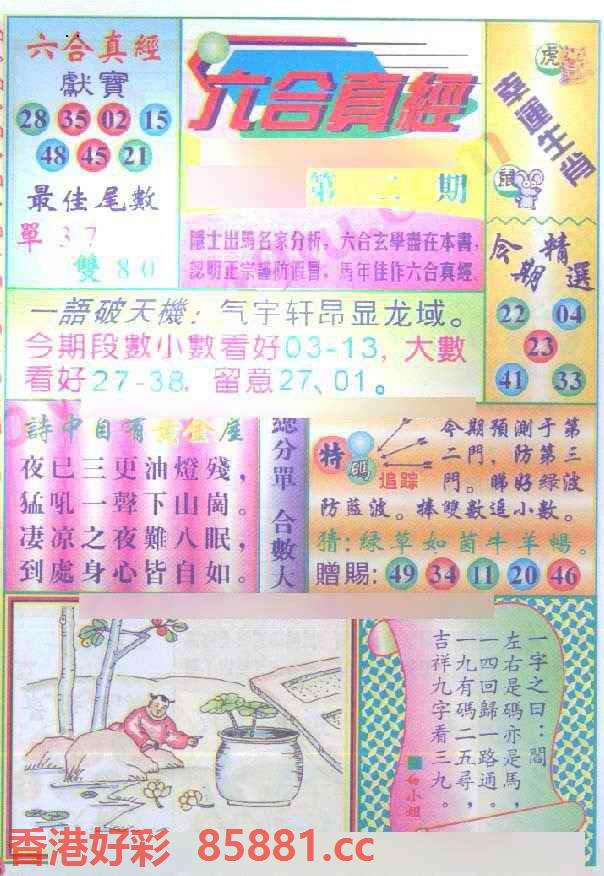 六合真經
獻寶
28 35 02 15
48 45 21
最佳尾數
單37
雙80
六合真經
第二期
隱士出馬名家分析，六合玄學盡在本書，
認明正宗謹防假冒，馬年佳作六合真經
虎
幸運生肖
鼠
今期精選
22 04
23
41 33
一語破天機：气宇轩昂显龙域。
今期段數小數看好03-13，大數
看好27-38．留意27、01。
詩中自有黃金屋
夜巳三更油燈殘，
猛吼一聲下山崗。
凄凉之夜難八眠，
到處身心皆自如。
總分單 合數大
特碼
追踪
今期預測于第
二門，防第三
門。睇好绿波
防藍波。捧雙數追小數。
猜：绿草如茵牛羊暢。
贈賜：49 34 11 20 46
一字之曰：闖
左右是碼亦是馬，
一四回歸一路通。
一九有碼二五尋，
吉祥九字看三九。
小姐
香港好彩 85881.cc